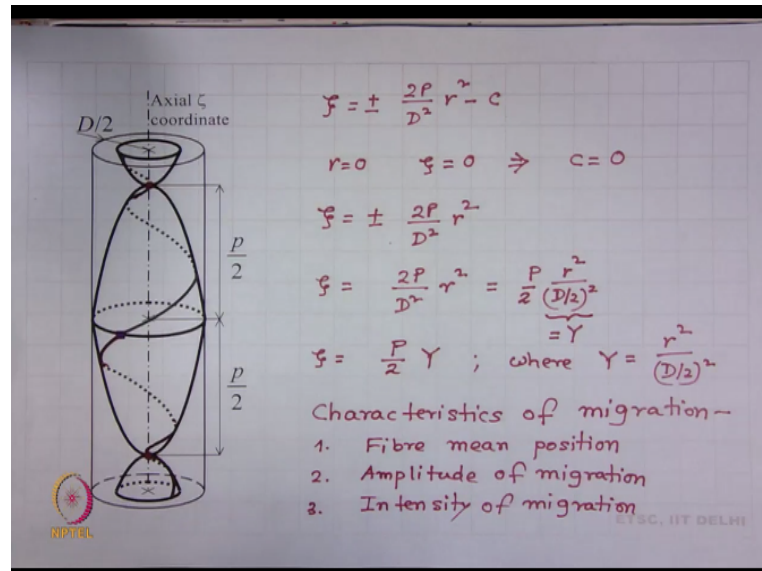 Axial ζ
coordinate
D/2
p/2
p/2
ξ = ± 2P/D² r² - c
r=0 ξ=0 ⇒ c=0
ξ = ± 2P/D² r²
ξ = 2P/D² r² = P/2 r²/(D/2)²
=Y
ξ = P/2 Y ; where Y = r²/(D/2)²
Characteristics of migration-
1. Fibre mean position
2. Amplitude of migration
3. Intensity of migration
ETSC, IIT DELHI
NPTEL